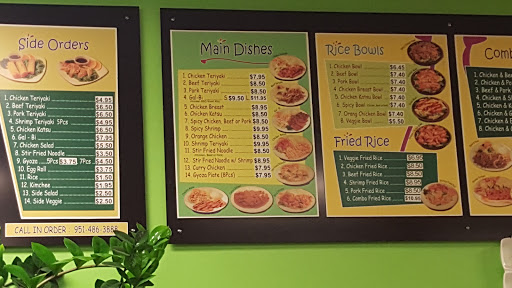 Side Orders
1. Chicken Teriyaki $4.95
2. Beef Teriyaki $6.50
3. Pork Teriyaki $4.95
4. Shrimp Teriyaki 5Pcs $6.95
5. Chicken Katsu $6.50
6. Gal - Bi $7.95
7. Chicken Salad $5.50
8. Stir Fried Noodle $3.50
9. Gyoza 5Pcs $3.75 7Pcs $4.50
10. Egg Roll $3.75
11. Rice $1.50
12. Kimchee $1.95
13. Side Salad $2.50
14. Side Veggie $2.50
CALL IN ORDER : 951-486-3888
Main Dishes
1. Chicken Teriyaki $7.95
2. Beef Teriyaki $8.50
3. Pork Teriyaki $8.50
4. Gal - Bi S $9.50 L $11.95
5. Chicken Breast $8.50
6. Chicken Katsu $8.50
7. Spicy Chicken, Beef or Pork $8.50
8. Spicy Shrimp $9.95
9. Orange Chicken $8.50
10. Shrimp Teriyaki $9.95
11. Stir Fried Noodle $8.50
12. Stir Fried Noodle w/ Shrimp $8.95
13. Curry Chicken $7.95
14. Gyoza Plate (8Pcs) $7.95
Rice Bowls
1. Chicken Bowl $6.45
2. Beef Bowl $7.40
3. Pork Bowl $7.40
4. Chicken Breast Bowl $7.40
5. Chicken Katsu Bowl $7.40
6. Spicy Bowl $7.40
7. Orang Chicken Bowl $7.40
8. Veggie Bowl $5.50
Fried Rice
1. Veggie Fried Rice $6.95
2. Chicken Fried Rice $8.50
3. Beef Fried Rice $8.50
4. Shrimp Fried Rice $8.95
5. Pork Fried Rice $8.50
6. Combo Fried Rice $10.95
Comb
1. Chicken & Be
2. Chicken &
3. Chicken &
4. Chicken &
5. Chicken &
6. Chicken &
7. Chicken &
8. Chicken &